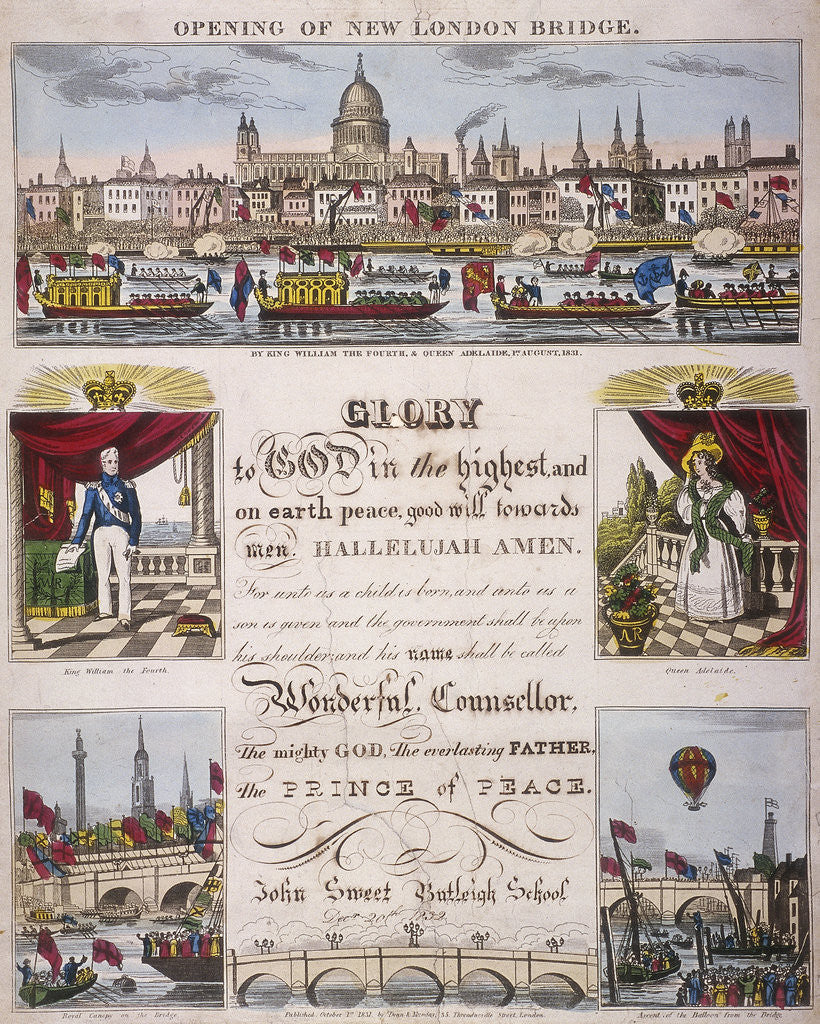 OPENING OF NEW LONDON BRIDGE.
BY KING WILLIAM THE FOURTH, & QUEEN ADELAIDE, 1st AUGUST, 1831.
GLORY
to GOD in the highest, and
on earth peace, good will towards
men. HALLELUJAH AMEN.
For unto us a child is born, and unto us a
son is given and the government shall be upon
his shoulder; and his name shall be called
Wonderful. Counsellor,
The mighty GOD, The everlasting FATHER,
The PRINCE of PEACE.
John Sweet Butleigh School
Decr 20th 1832
WR
King William the Fourth.
AR
Queen Adelaide.
Royal Canopy on the Bridge.
Published, October 1st 1831, by Dean & Munday, 35, Threadneedle Street, London.
Ascent of the Balloon from the Bridge.